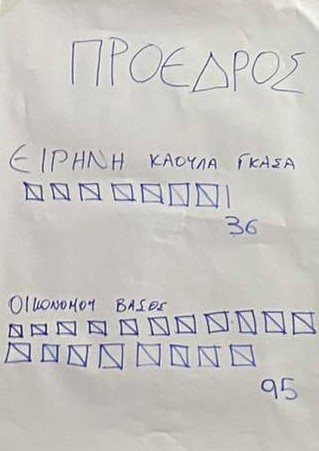 ΠΡΟΕΔΡΟΣ
ΕΙΡΗΝΗ ΚΑΟΥΛΑ ΓΚΑΣΑ
36
ΟΙΚΟΝΟΜΟΥ ΒΑΣΟΣ
95